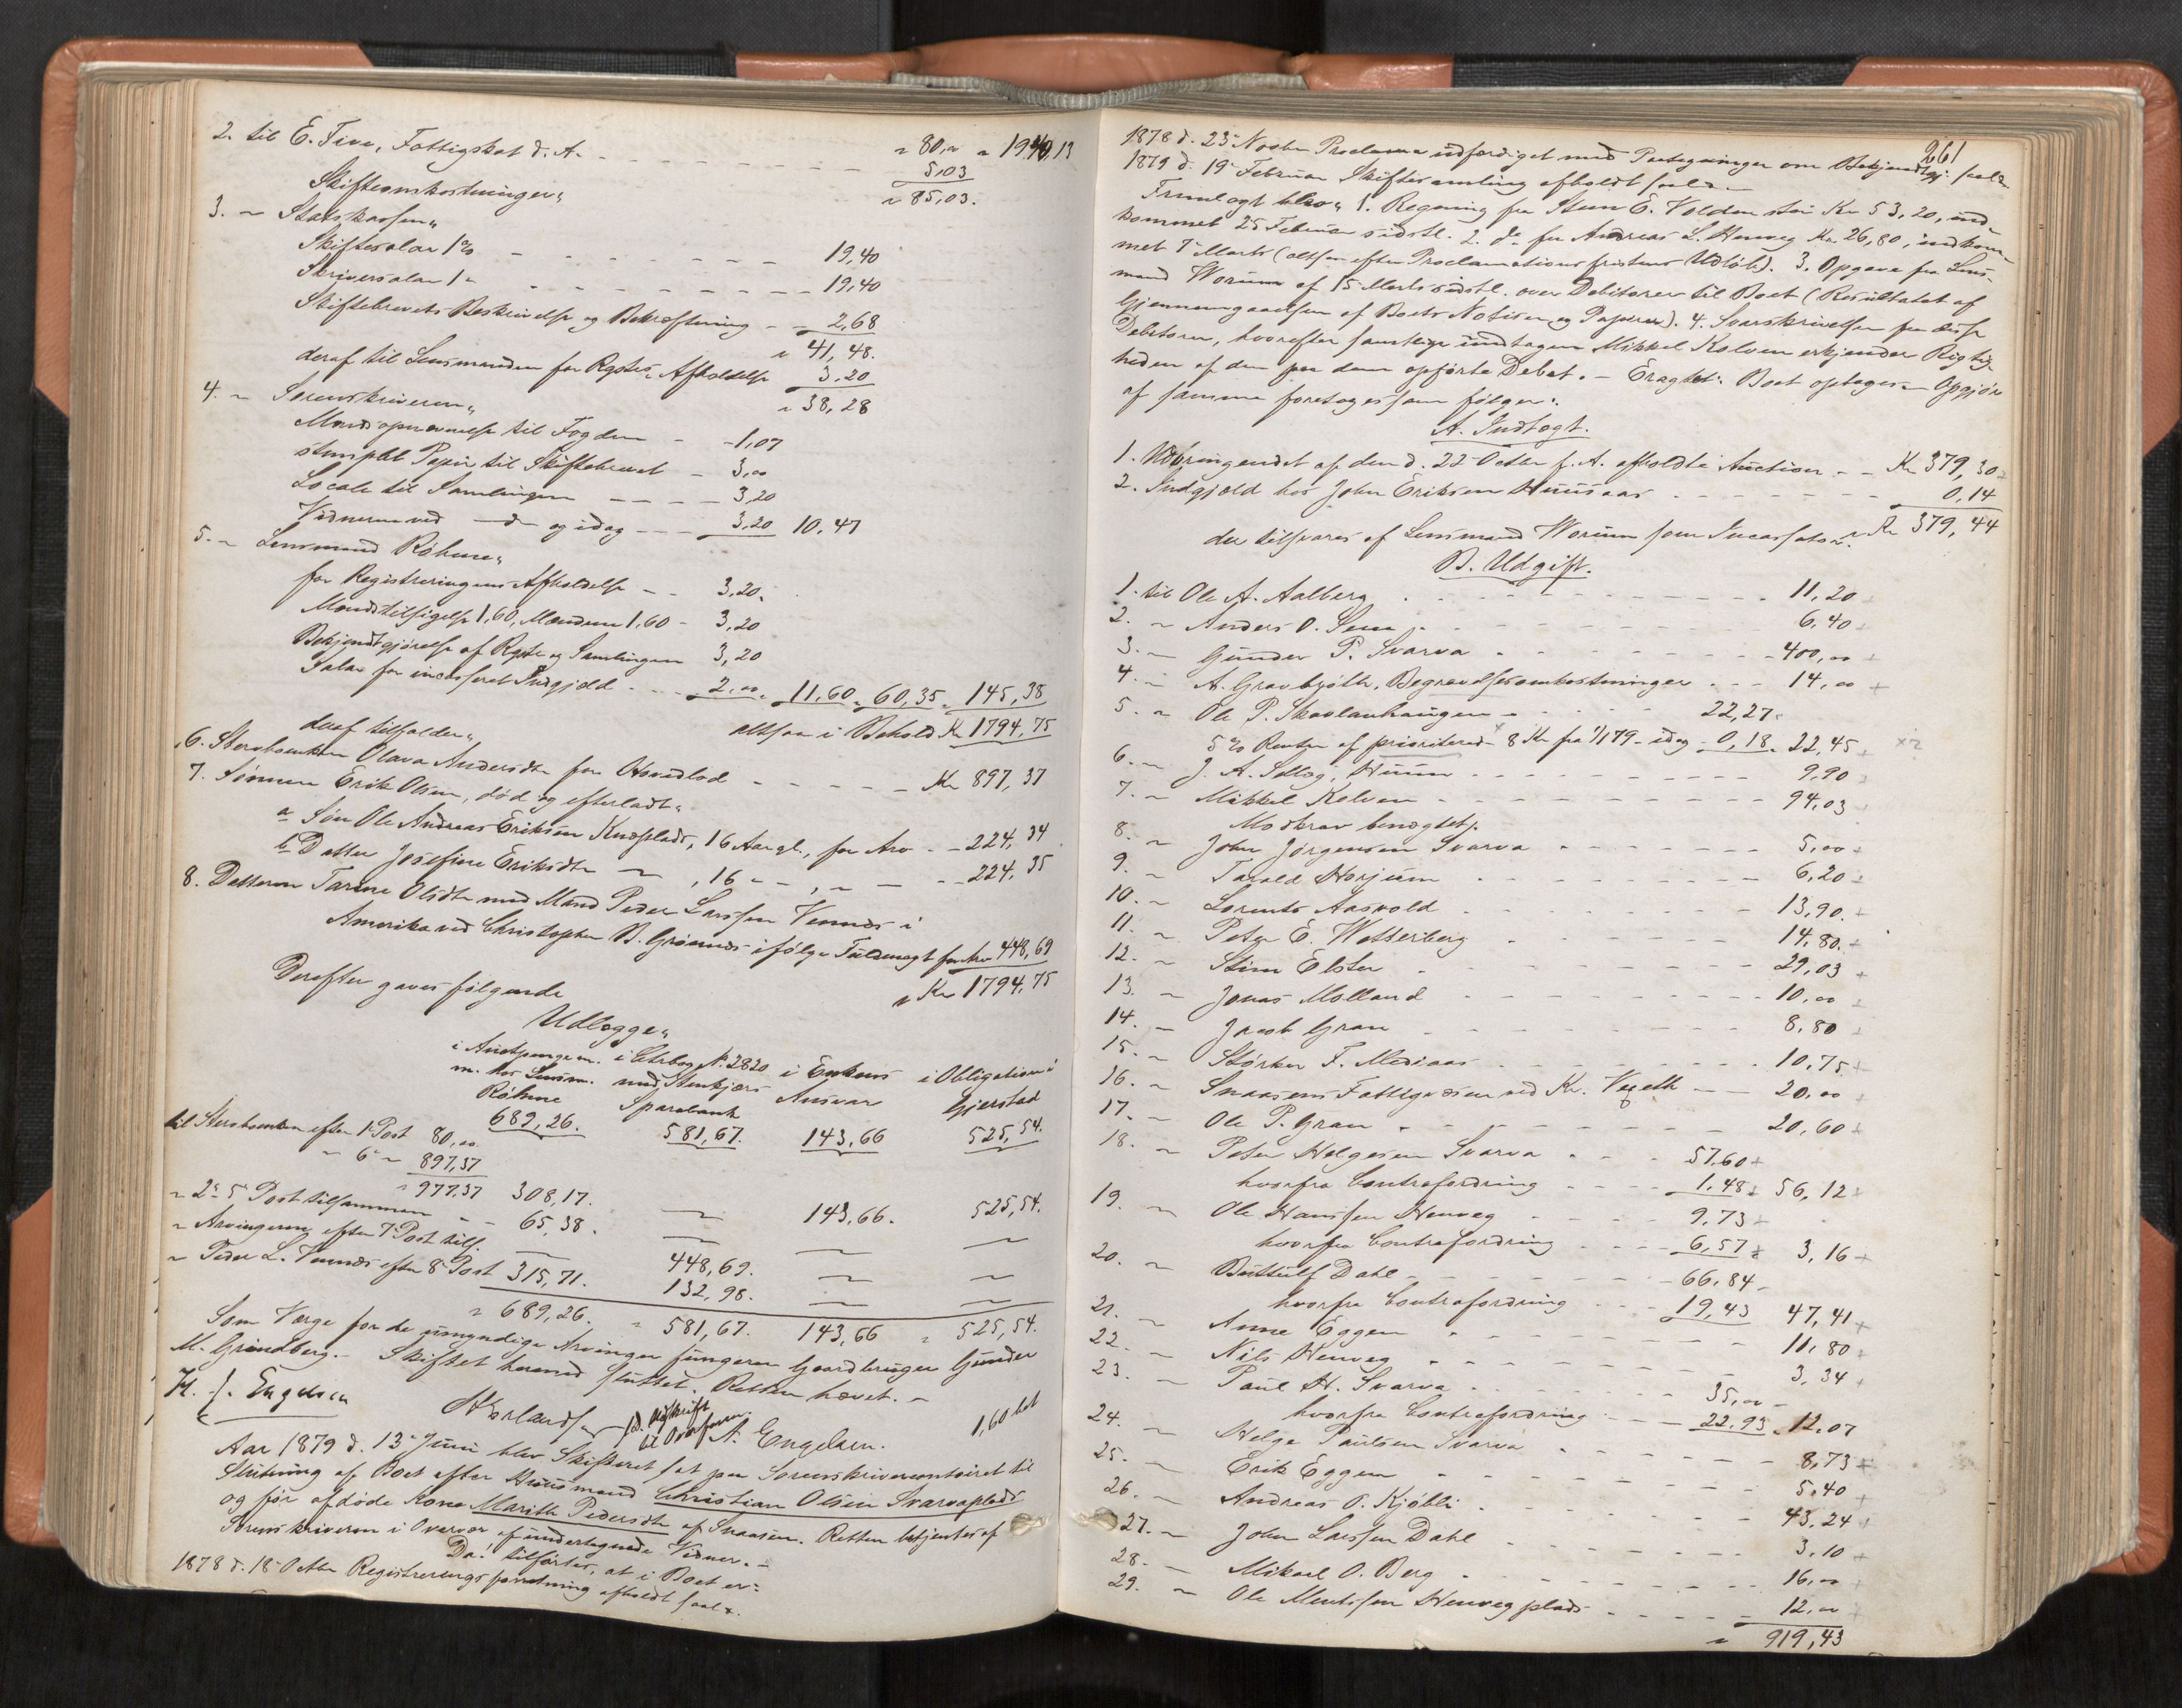 2. til E. Five, Fattigskat d. A. - - - - - - - " 80,00 " 1940,13
5,03
Skifteomkostninger: " 85,03.
3. " Statskassen:
Skiftesalær 1% - - - - - - 19,40
Skriversalær 1" - - - - - - 19,40
Skiftebrevets Beskrivelse og Bekræftning - - 2,68
" 41,48.
deraf til Lensmanden for Rgstrs. Afholdelse 3,20
4. " Sorenskriveren: " 38,28
Mandsopnævnelse til Fogden - - 1,07
stemplet Papir til Skiftebrevet - 3,00
Locale til Samlingen - - - - 3,20
Vidnerne ved —d— og idag - - - 3,20 10,47
5. " Lensmand Röhme:
for Registreringens Afholdelse - - 3,20.
Mandstilsigelse 1,60, Mændene 1,60 - 3,20
Bekjendtgjørelse af Rgstr. og Samlingen 3,20
Salær for incasseret Indgjæld - - - 2,00. 11,60. 60,35. 145,38
altsaa i Behold Kr 1794,75
deraf tilfalder:
6. Sterboenken Olava Andersdtr for Hovedlod - - - - - Kr 897,37
7. Sønnen Erik Olsen, død og efterladt:
a Søn Ole Andreas Eriksen Knæplads, 16 Aar gl., for Arv - - 224,34
b Datter Josefine Eriksdtr — , 16 - - , - — - - 224,35
8. Datteren Tarine Olsdtr med Mand Peder Larssen Vennes i
Amerika ved Christopher B. Grønnes ifølge Fuldmagt for Arv 448,69
" Kr 1794,75
Derefter gaves følgende
Udlægge:
i Auctpenge m. i Ctrbog N. 2820 i Enkens i Obligation i
m. hos Lensm. med Stenkjærs Ansvar Gjerstad
Röhme Sparebank
689,26. 581,67. 143,66 525,54.
til Sterboenken efter 1 Post 80,00
" 6 " 897,37
" 977,37 308,17. — 143,66. 525,54.
" 2-5 Post tilsammen - - 65,38. — — —
" Arvingerne efter 7 Post tils. — 448,69. — —
" Peder L. Vennes efter 8 Post 315,71. 132,98. — —
" 689,26. " 581,67. 143,66 " 525,54.
Som Værge for de umyndige Arvinger fungerer Gaardbruger Gunder
M. Grundberg. - Skiftet hermed sluttet. Retten hævet. -
H. J. Engelsen
Erlandsen A. Engelsen. 1,60 bet
Aar 1879 d. 13 Juni blev Skifteret sat paa Sorenskrivercontoiret til
Slutning af Boet efter Huusmand Christian Olsen Svarvaplads
og før afdøde Kone Marith Pedersdtr af Snaasen. Retten betjentes af
Sorenskriveren i Overvær af undertegnede Vidner. -
Da! tilførtes, at i Boet er:
1878 d. 18 Octbr Registreringsforretning afholdt saal.
261
1878 d. 23 Novbr Proclama udfærdiget med Paategninger om Bekjendtgj. saal.
1879 d. 19 Februar Skiftesamling afholdt saal. -
Fremlagt blev: 1. Regning fra Steen E. Volden stor Kr 53,20, ind-
kommet 25 Februar sidstl. 2. do fra Andreas L. Hunveg Kr. 26,80, indkom-
met 7 Marts (altsaa efter Proclamationsfristens Udløb). 3. Opgave fra Lens-
mand Worum af 15 Marts sidstl. over Debitorer til Boet (Resultatet af
Gjennemgaaelsen af Boets Notiser og Papirer). 4. Svarskrivelser fra disse
Debitorer, hvorefter samtlige undtagen Mikkel Kolven erkjender Rigtig-
heden af den paa dem opførte Debet. - Eragtet: Boet optages. - Opgjør
af samme foretages som følger:
A. Indtægt.
1. Udbringendet af den d. 22 Octbr f. A. afholdte Auction - - Kr 379,30
2. Indgjæld hos John Eriksen Huusaas - - - - - 0,14
der tilsvares af Lensmand Worum som Incassator. " Kr 379,44
B. Udgift.
1. til Ole A. Aalberg - - - - - 11,20
2. " Anders O. Sem - - - - - 6,40
3. " Gunder P. Svarva - - - - - 400,00
4. " A. Gravbrøtli, Begravelsesomkostninger - - - 14,00
5. " Ole P. Skavlanhaugen - - - 22,27
5% Renter af prioriterede 8 Kr fra 1/1 79 - idag - 0,18. 22,45
6. " J. A. Selleg, Huum - - - - - 9,90
7. " Mikkel Kolven - - - - - 94,03
Modkrav benægtet.
8. " John Jørgensen Svarva - - - - - 5,00
9. " Tarald Horjum - - - - - 6,20
10. " Lorents Aasvold - - - - - 13,90.
11. " Peter E. Wetterberg - - - - - 14,80.
12. " Stine Elster - - - - - 29,03
13. " Jonas Molland - - - - - 10,00
14. " Jacob Gran - - - - - 8,80
15. " Størker F. Mediaas - - - - - 10,75
16. " Snaasens Fattigvæsen ved Kr. Vegeth - - 20,00
17. " Ole P. Gran - - - - - 20,60
18. " Peter Helgesen Svarva - - - 57,60
hvorfra Contrafordring - - - - 1,48 56,12
19. " Ole Hanssen Hunveg - - - 9,73
hvorfra Contrafordring - - - - 6,57 3,16
20. " Bottulf Dahl - - - - 66,84
hvorfra Contrafordring - - - 19,43 47,41
21. " Anne Eggen - - - - - 11,80
22. " Nils Hunveg - - - - - 3,34
23. " Paul H. Svarva - - - - 35,00
hvorfra Contrafordring - - - 22,93 12,07
24. " Helge Paulsen Svarva - - - - - 8,73
25. " Erik Eggen - - - - - 5,40
26. " Andreas O. Kjøbli - - - - - 43,24
27. " John Larssen Dahl - - - - - 3,10
28. " Mikael O. Berg - - - - - 16,00
29. " Ole Mentssen Hunvegplads - - - - - 12,00
" 919,43